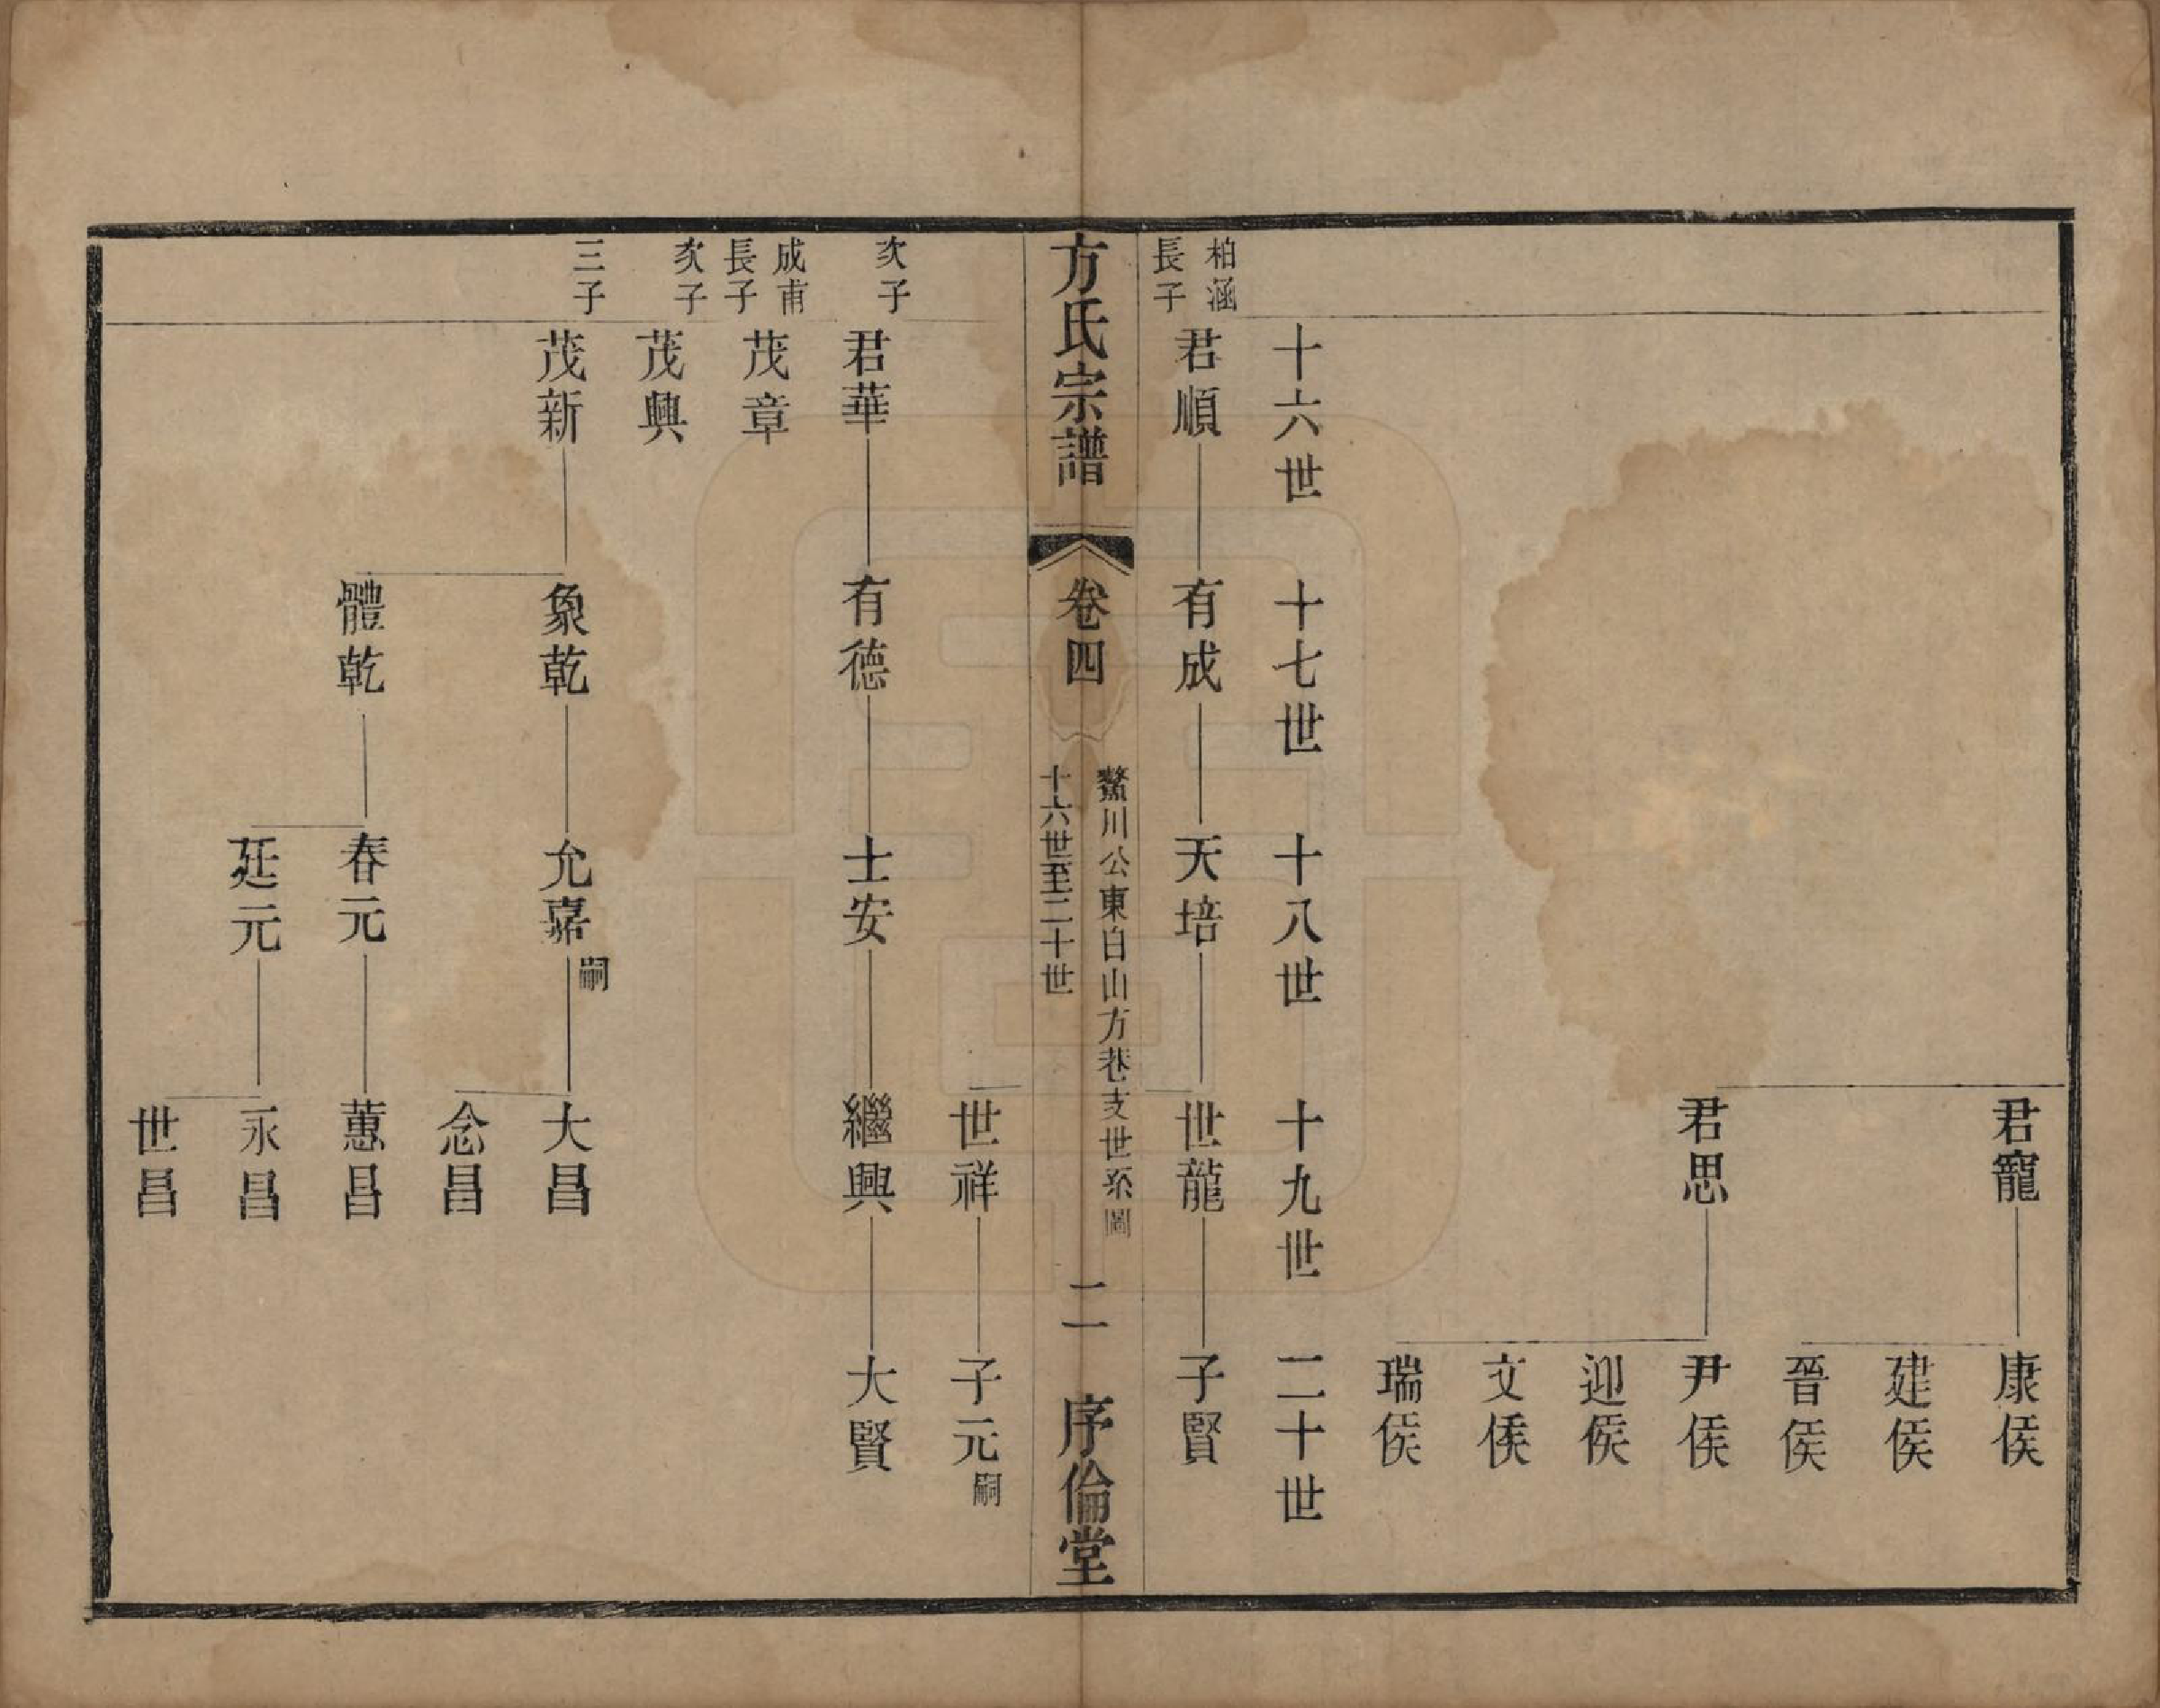 君寵
康侯
建侯
晉侯
君思
尹侯
迎侯
文侯
瑞侯
十六世
十七世
十八世
十九世
二十世
柏涵
長子
君順
有成
天培
世龍
子賢
方氏宗譜
卷四
鰲川公東白山方巷支世系圖
十六世至二十世
二
序倫堂
世祥
子元嗣
次子
君華
有德
士安
繼興
大賢
成甫
長子
茂章
次子
茂興
三子
茂新
象乾
允嘉嗣
大昌
念昌
體乾
春元
蕙昌
廷元
永昌
世昌